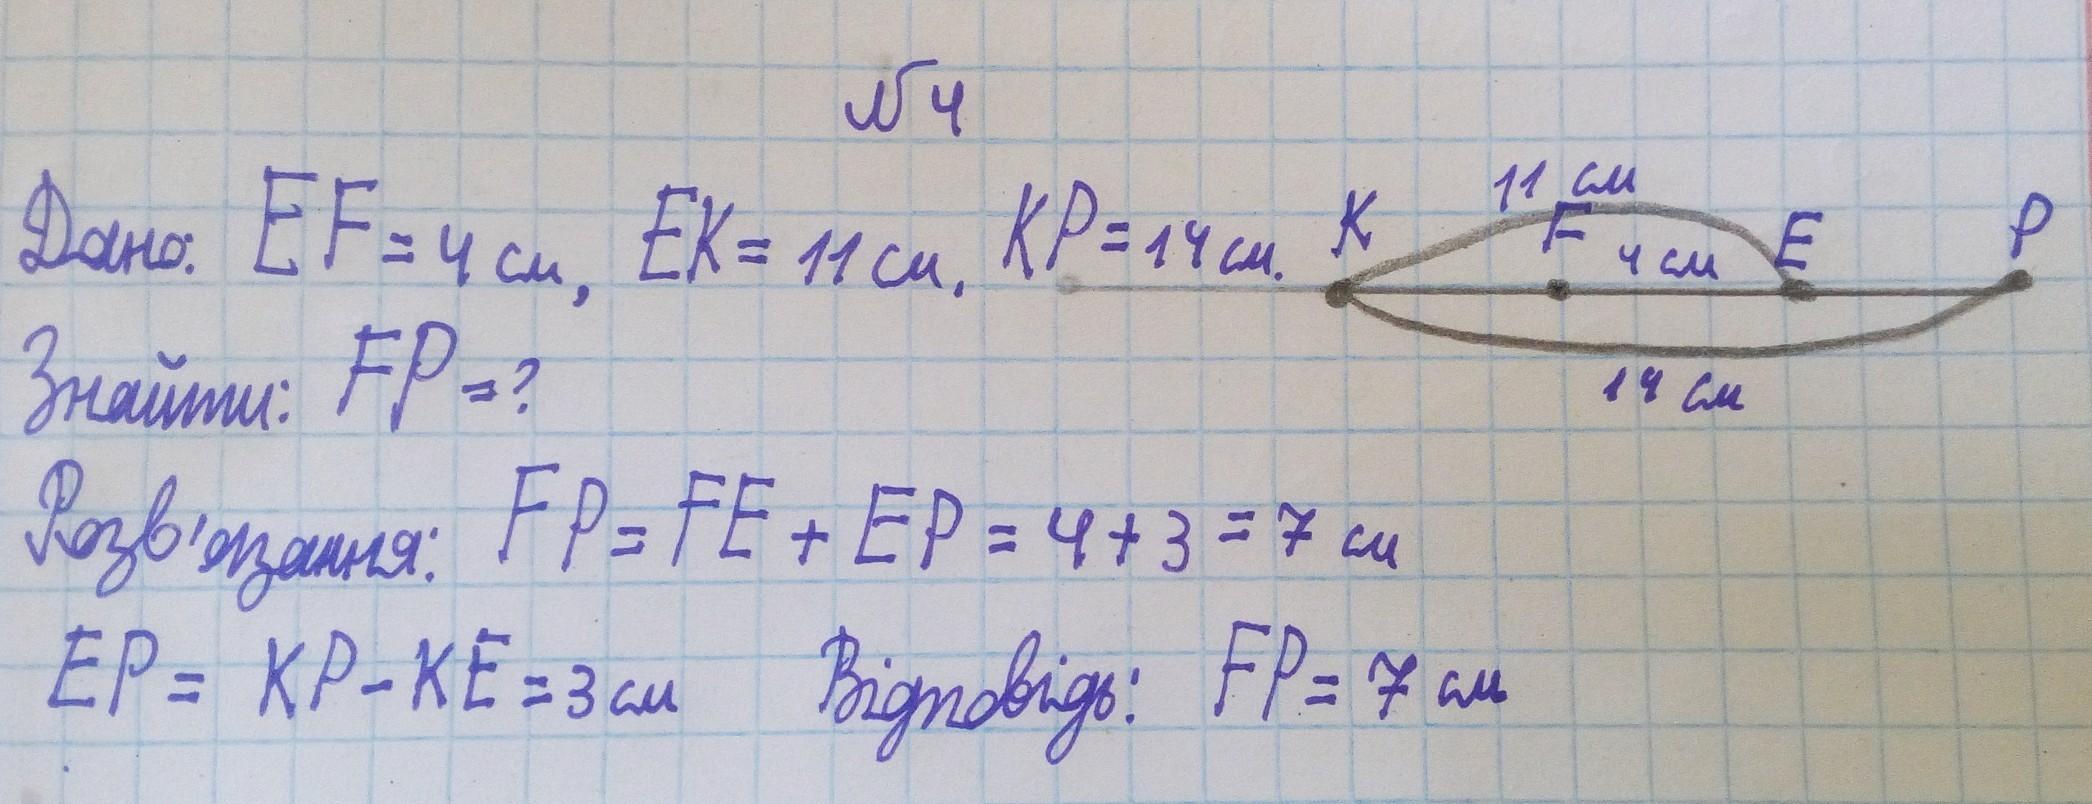 № 4
Дано: EF = 4 см, EK = 11 см, KP = 14 см.
K 11 см F 4 см E P
14 см
Знайти: FP = ?
Розв'язання: FP = FE + EP = 4 + 3 = 7 см
EP = KP - KE = 3 см Відповідь: FP = 7 см